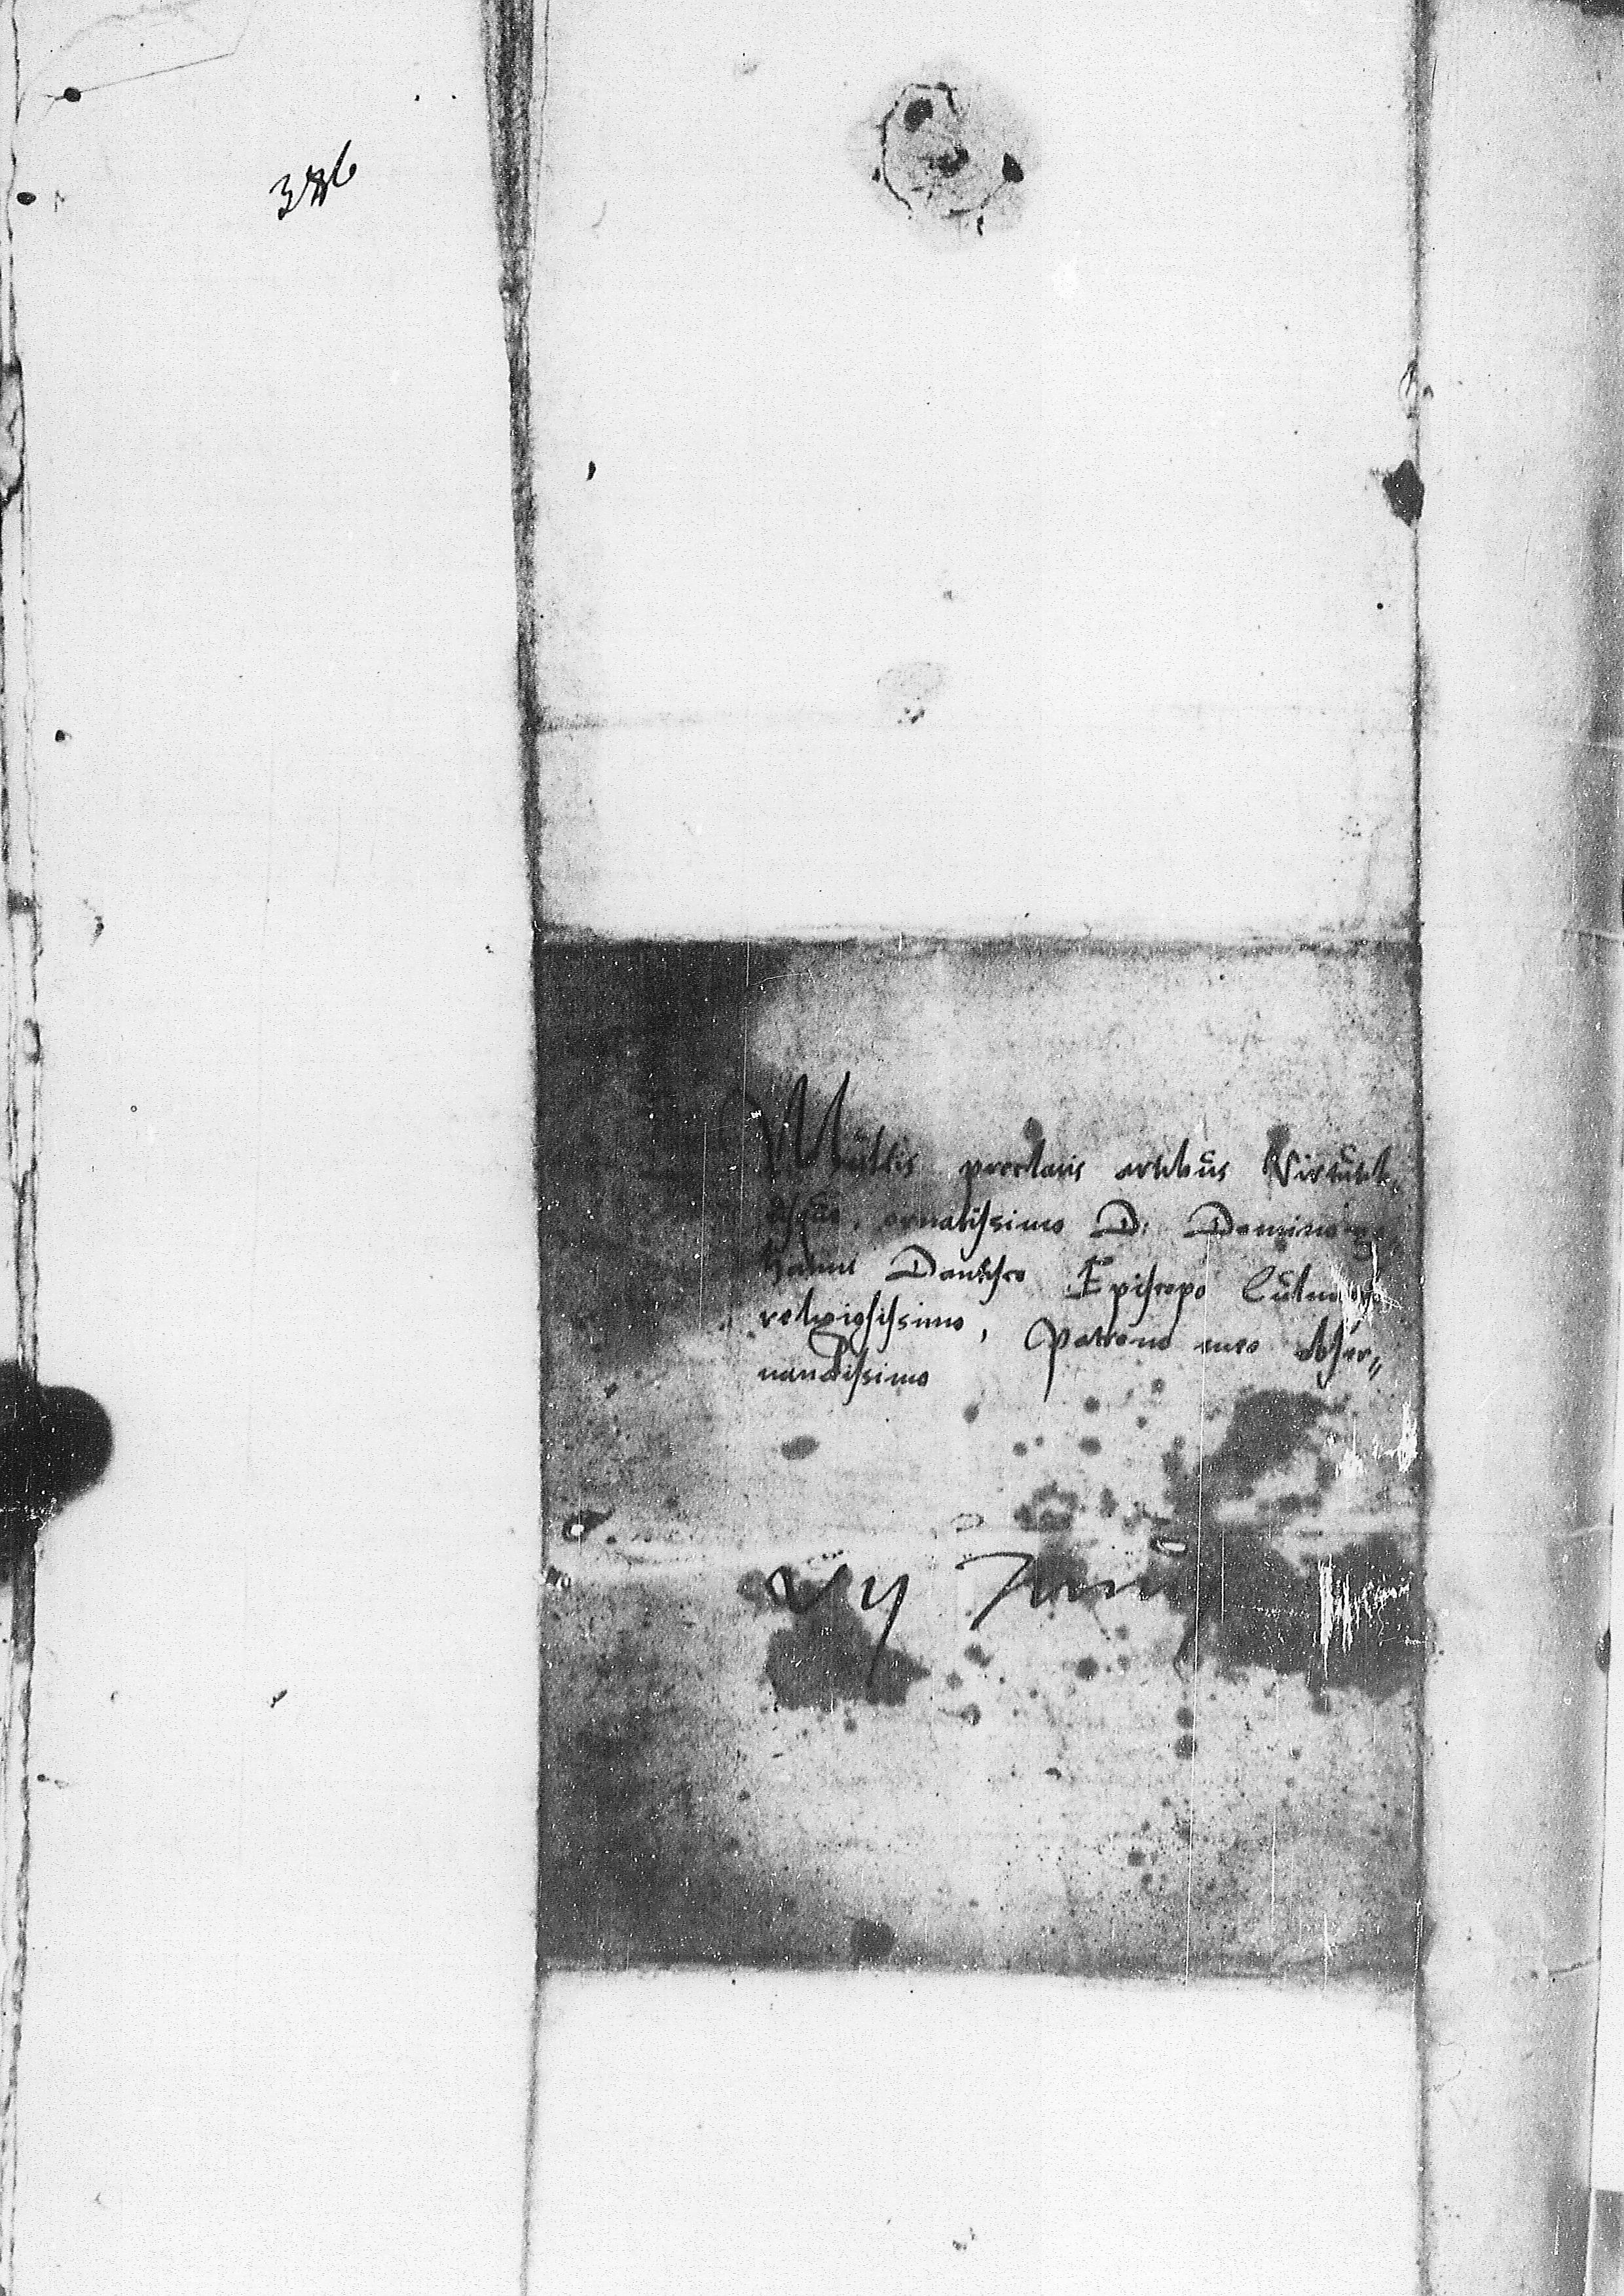 Multis preclaris artibus Virtuti
busque, ornatissimo D. Domino Jo
hanni Dantisco Episcopo Culmen
religiosissimo, Patrono meo obser„
uandissimo
vij Junij